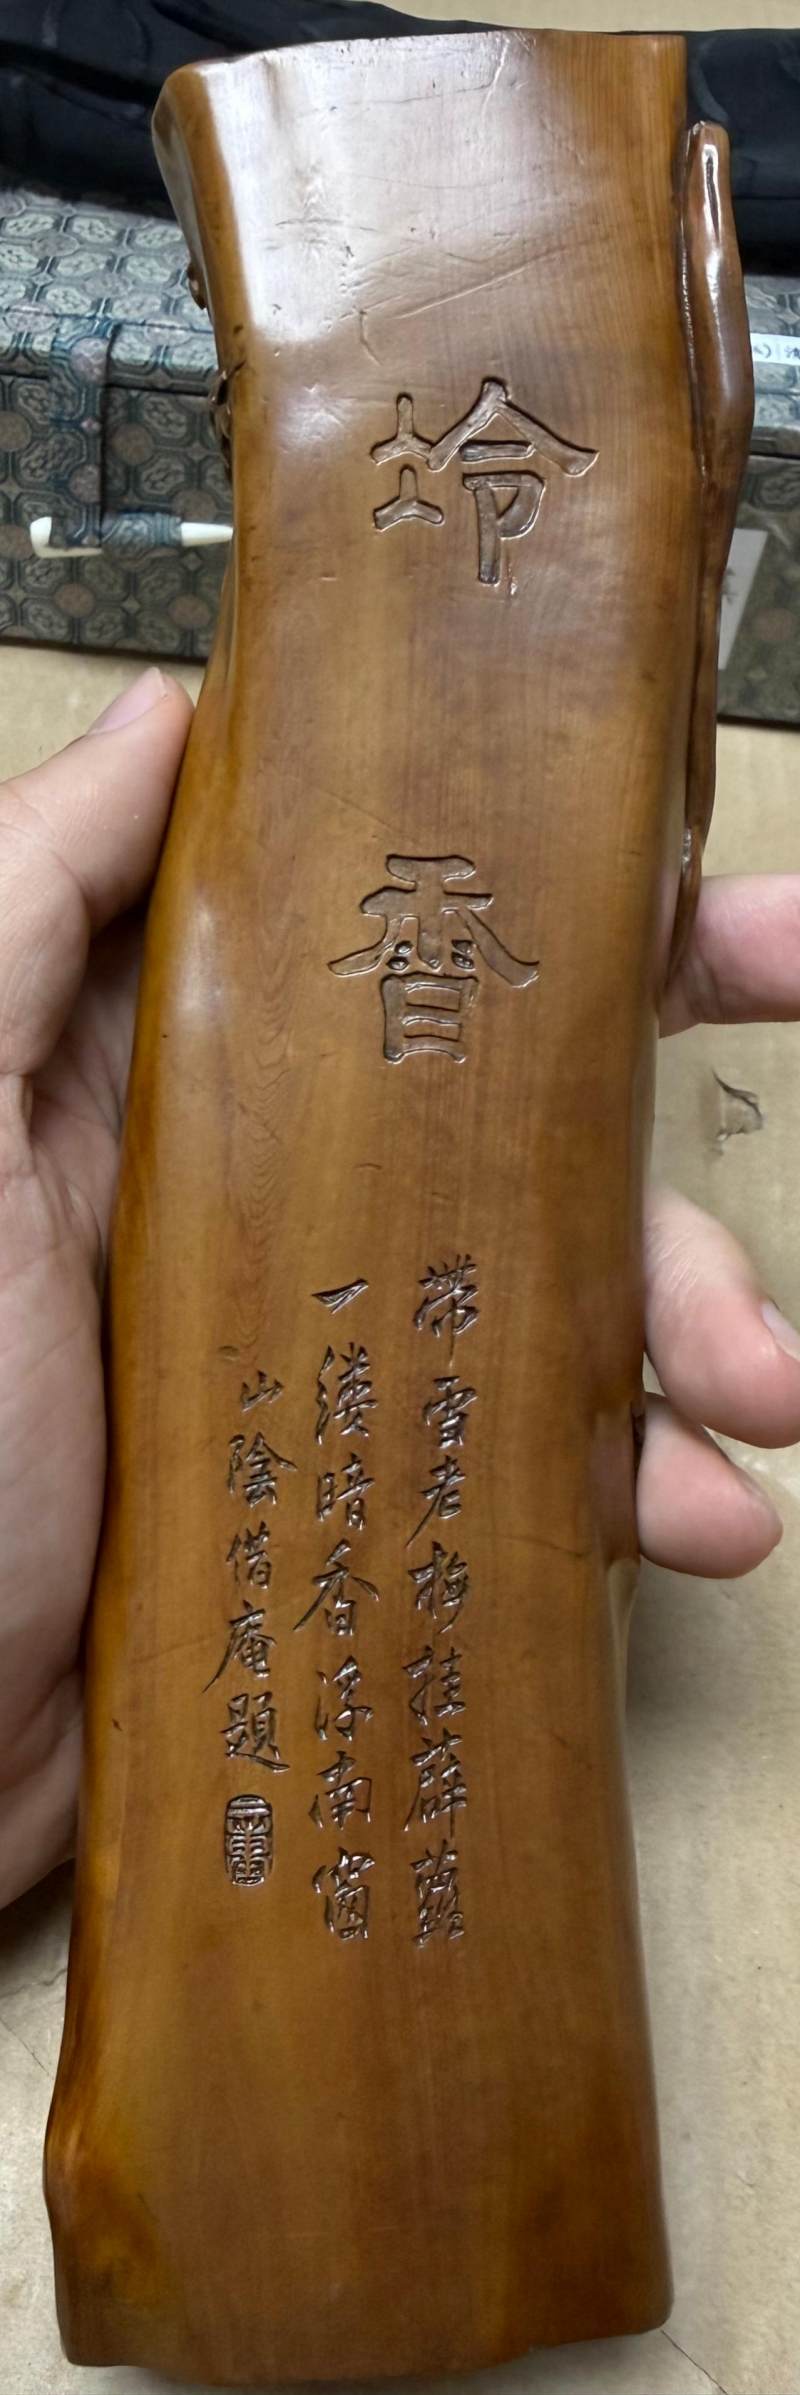 冷香
帶雪老梅挂薜蘿
一縷暗香浮南窗
山陰借庵題